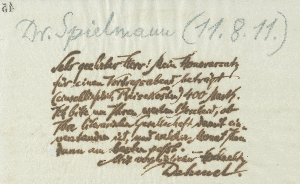 Dr. Spielmann (11.8.11.)
Sehr geehrter Herr! Mein Honorarsatz
für einen Vortragsabend beträgt
(einschließlich Reisekosten) 400 Mark.
Ich bitte um Ihren Bescheid, ob
Ihre literarische Gesellschaft damit ein-
verstanden ist, und welcher Monat Ihnen
dann am besten paßt.
Mit
Dehmel